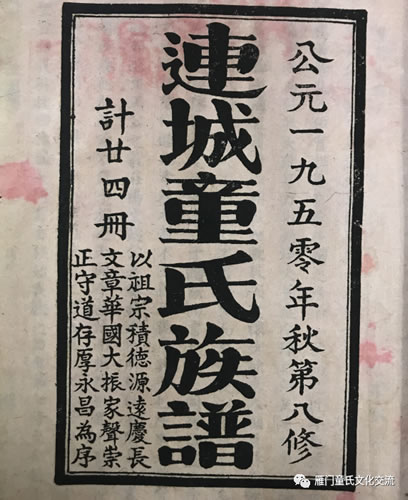 公元一九五零年秋第八修
連城童氏族譜
計廿四冊
以祖宗積德源遠慶長
文章華國大振家聲崇
正守道存厚永昌為序
雁门童氏文化交流